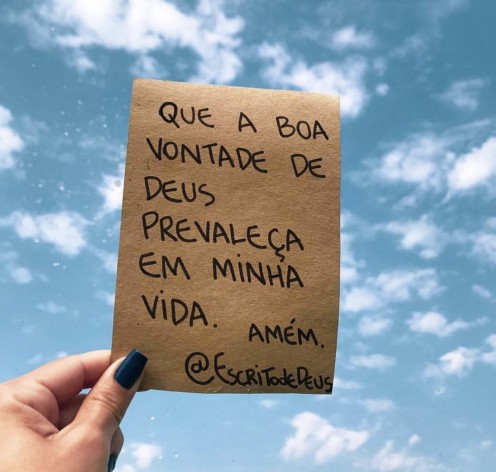 QUE A BOA
VONTADE DE
DEUS
PREVALEÇA
EM MINHA
VIDA. AMÉM.
@ESCRITodeDEUS